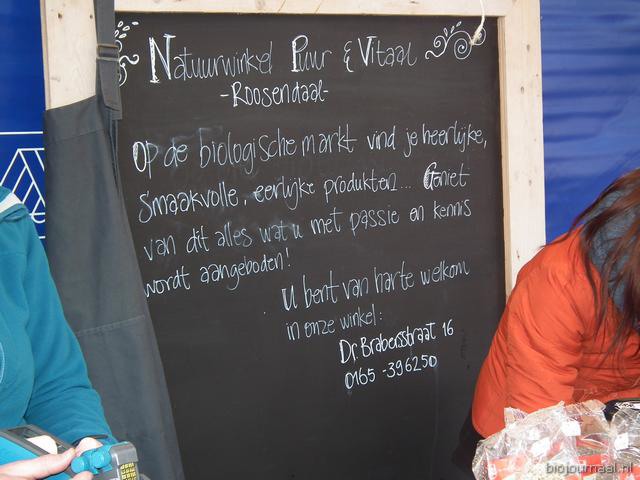 Natuurwinkel Puur & Vitaal
-Roosendaal-
Op de biologische markt vind je heerlijke,
smaakvolle, eerlijke produkten... Geniet
van dit alles wat u met passie en kennis
wordt aangeboden!
U bent van harte welkom
in onze winkel:
Dr. Brabersstraat 16
0165-396250
biojournaal.nl